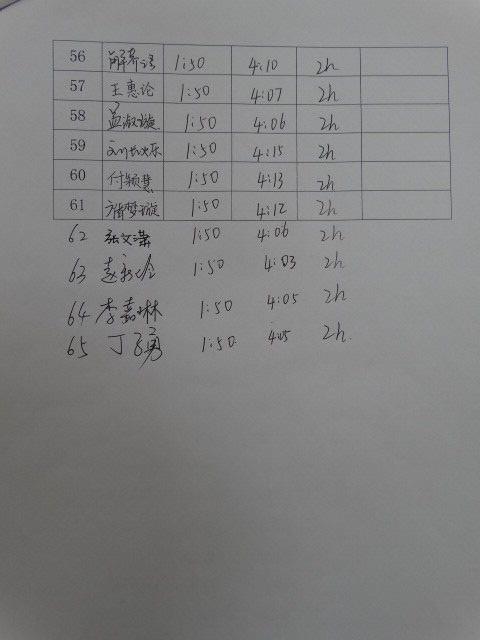 56 解 1:50 4:10 2h
57 王惠论 1:50 4:07 2h
58 孟淑璇 1:50 4:06 2h
59 1:50 4:15 2h
60 付颖慧 1:50 4:13 2h
61 梦璇 1:50 4:12 2h
62 张文潇 1:50 4:06 2h
63 赵 1:50 4:03 2h
64 李嘉琳 1:50 4:05 2h
65 丁勇 1:50 4:05 2h